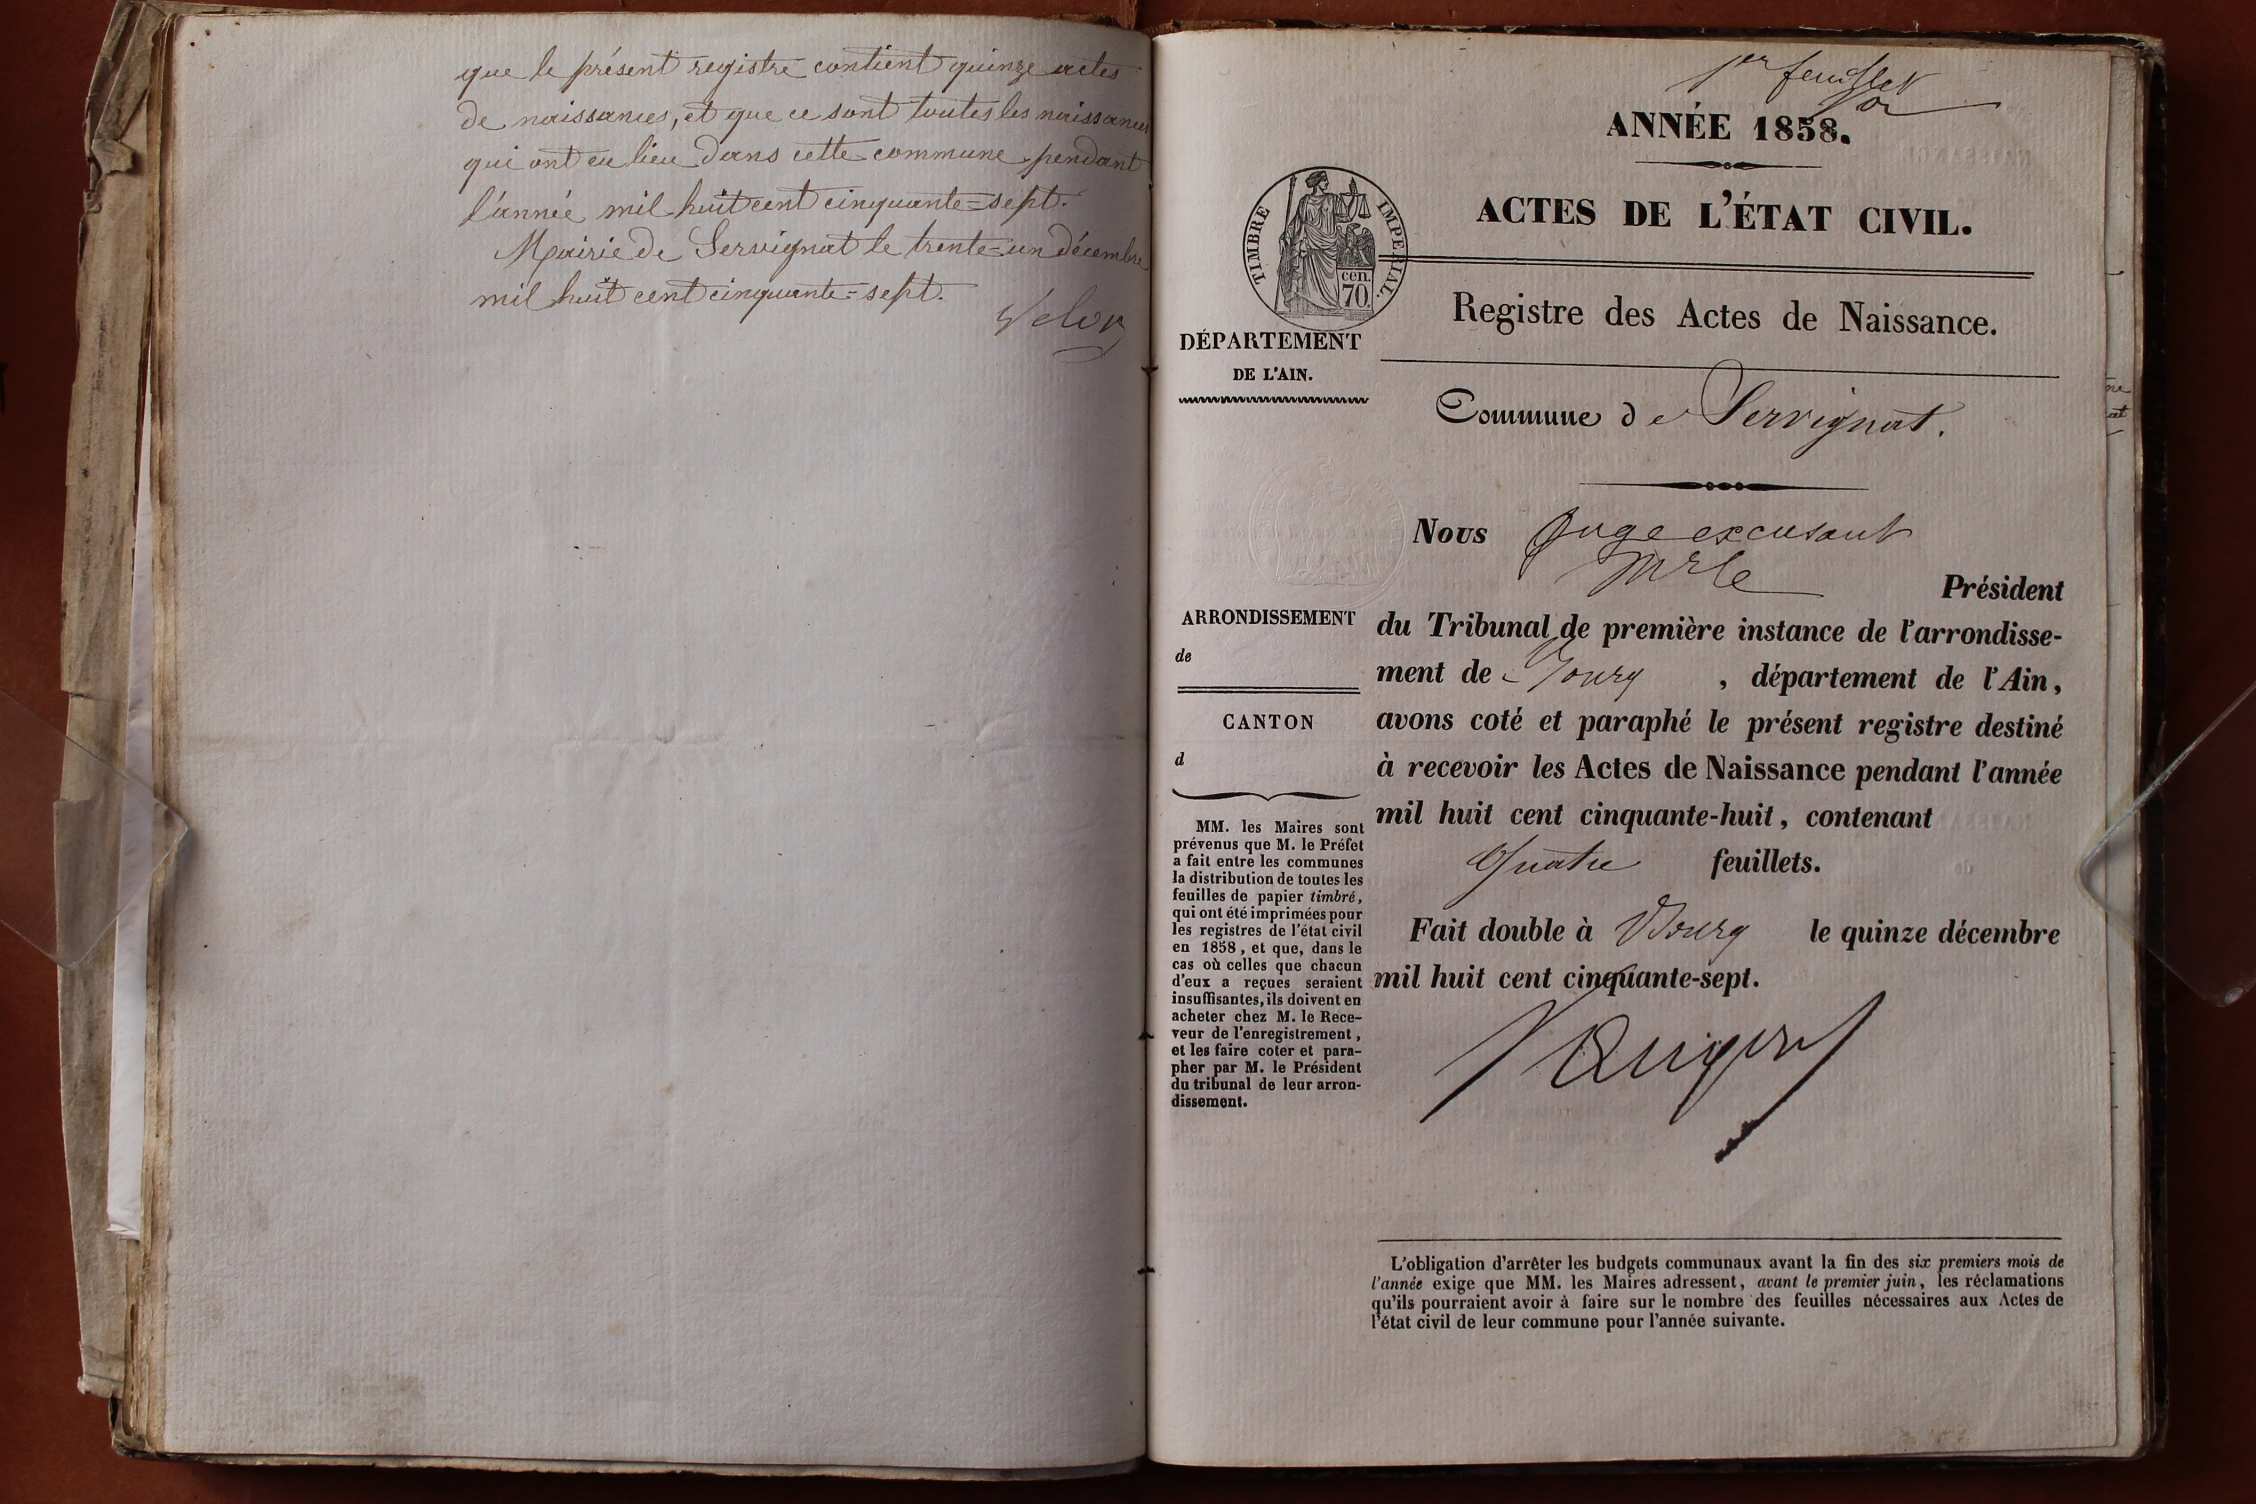 que le présent registre contient quinze actes
de naissances, et que ce sont toutes les naissances
qui ont eu lieu dans cette commune pendant
l'année mil huit cent cinquante=sept.
Mairie de Servignat le trente=un décembre
mil huit cent cinquante=sept.
1er feuillet
ANNÉE 1858.
ACTES DE L'ÉTAT CIVIL.
TIMBRE IMPERIAL.
cen.
70.
Registre des Actes de Naissance.
DÉPARTEMENT
DE L'AIN.
Commune de Servignat.
Nous Juge excusant
Mr le
Président
du Tribunal de première instance de l'arrondisse-
ment de Bourg , département de l'Ain,
avons coté et paraphé le présent registre destiné
à recevoir les Actes de Naissance pendant l'année
mil huit cent cinquante-huit, contenant
Quatre feuillets.
Fait double à Bourg le quinze décembre
mil huit cent cinquante-sept.
ARRONDISSEMENT
de
CANTON
d
MM. les Maires sont
prévenus que M. le Préfet
a fait entre les communes
la distribution de toutes les
feuilles de papier timbré,
qui ont été imprimées pour
les registres de l'état civil
en 1858, et que, dans le
cas où celles que chacun
d'eux a reçues seraient
insuffisantes, ils doivent en
acheter chez M. le Rece-
veur de l'enregistrement,
et les faire coter et para-
pher par M. le Président
du tribunal de leur arron-
dissement.
L'obligation d'arrêter les budgets communaux avant la fin des six premiers mois de
l'année exige que MM. les Maires adressent, avant le premier juin, les réclamations
qu'ils pourraient avoir à faire sur le nombre des feuilles nécessaires aux Actes de
l'état civil de leur commune pour l'année suivante.